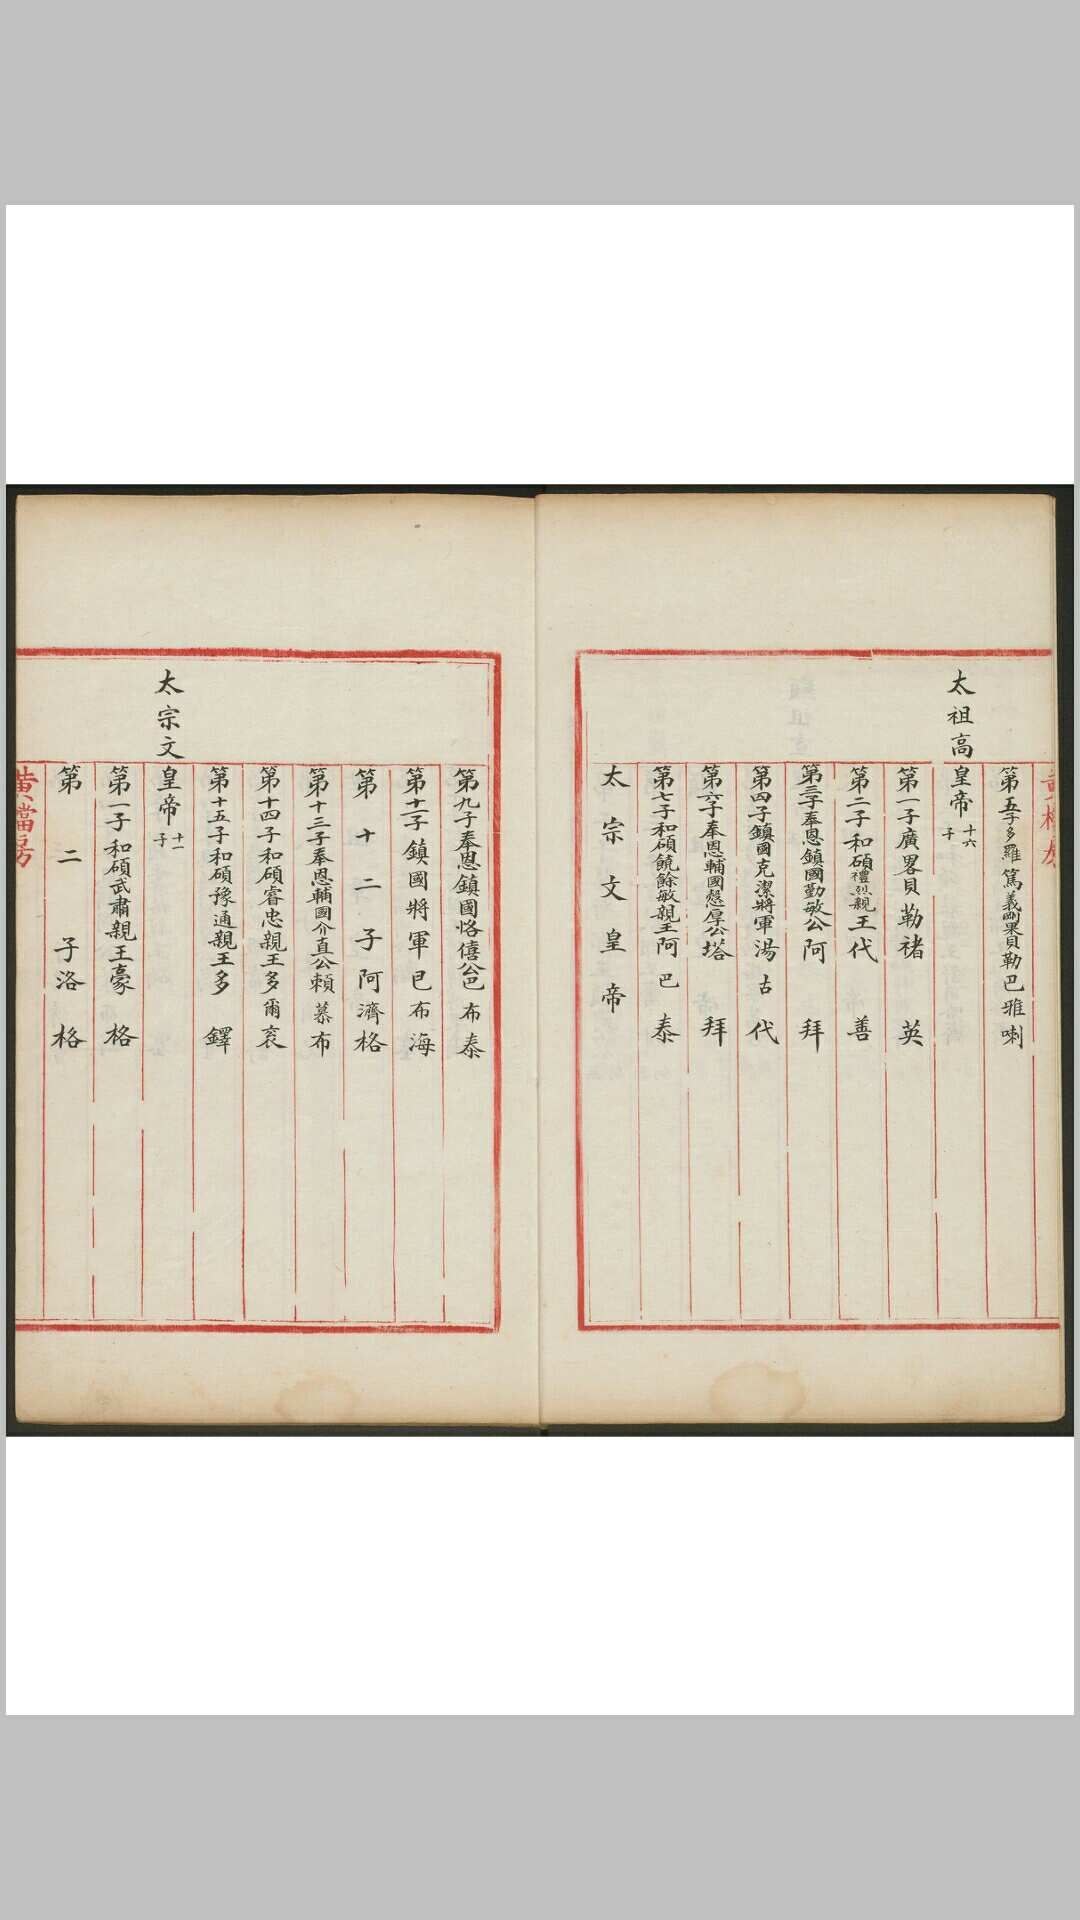 第五子多羅篤義剛果貝勒巴雅喇
太祖高皇帝十六子
第一子廣畧貝勒褚英
第二子和碩禮烈親王代善
第三子奉恩鎮國勤敏公阿拜
第四子鎮國克潔將軍湯古代
第六子奉恩輔國愨厚公塔拜
第七子和碩饒餘敏親王阿巴泰
太宗文皇帝
第九子奉恩鎮國恪僖公巴布泰
第十一子鎮國將軍巴布海
第十二子阿濟格
第十三子奉恩輔國介直公賴慕布
第十四子和碩睿忠親王多爾袞
第十五子和碩豫通親王多鐸
太宗文皇帝十一子
第一子和碩武肅親王豪格
第二子洛格
黃檔房